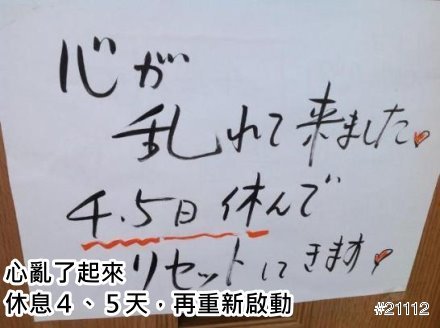 心が
乱れて来ました
4.5日休んで
リセットしてきます
心亂了起來
休息４、５天，再重新啟動
#21112